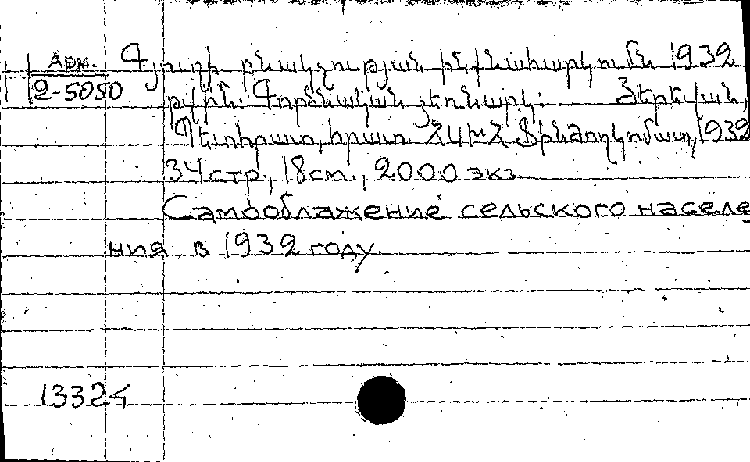 Арм.
2-5050
Գյուղի բնակչության ինքնահարկումն 1932
թվին: Գործնական ձեռնարկ: Յերեվան
Պետհրատ, հրատ. ՀՍԽՀ Ֆինժողկոմատ, 1932
34 стр., 18 см., 2000 экз.
Самообложение сельского населе
ния в 1932 году
13324